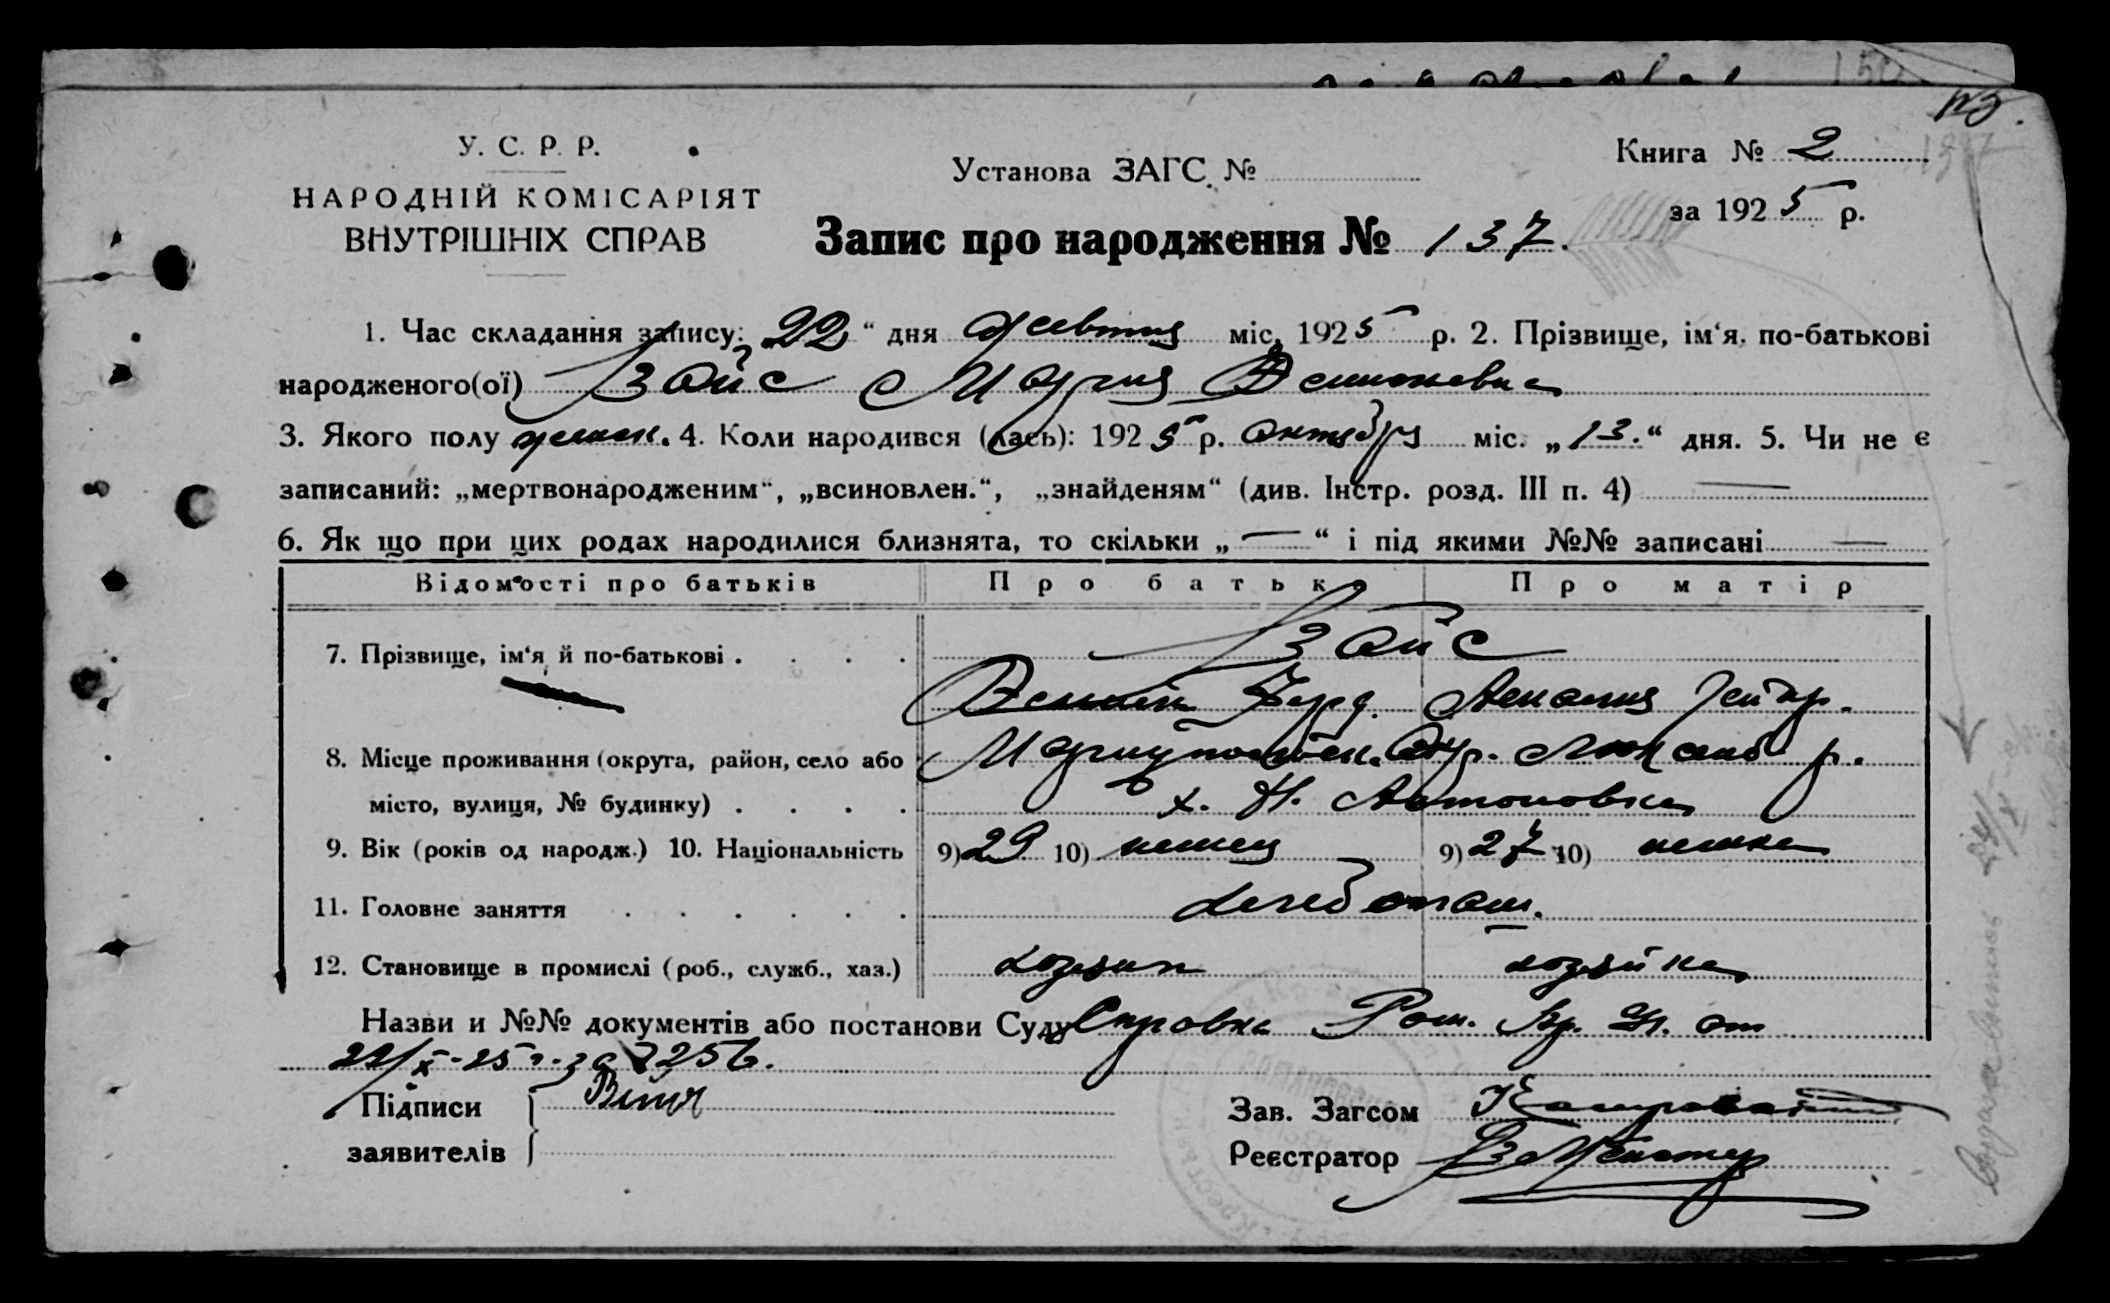 У. С. Р. Р.
НАРОДНІЙ КОМІСАРІЯТ
ВНУТРІШНІХ СПРАВ
Установа ЗАГС №
Книга № 2
за 1925 р.
Запис про народження № 137.
1. Час складання запису: „22“ дня жовтня міс. 1925 р. 2. Прізвище, ім‘я, по-батькові
народженого(ої) Зайс Мария
3. Якого полу женск. 4. Коли народився (лась): 1925 р. октября міс. „13.“ дня. 5. Чи не є
записаний: „мертвонародженим“, „всиновлен.“, „знайденям“ (див. Інстр. розд. III п. 4) —
6. Як що при цих родах народилися близнята, то скільки „—“ і під якими №№ записані —
Відомості про батьків Про батьк Про матір
7. Прізвище, ім‘я й по-батькові . . . . Зайс
8. Місце проживання (округа, район, село або Мариупольск. Окр. Люксемб. р.
місто, вулиця, № будинку) . . . . х. Н. Антоновка
9. Вік (років од народж.) 10. Національність 9) 29 10) немец 9) 27 10) немка
11. Головне заняття . . . . . . хлебопаш.
12. Становище в промислі (роб., служб., хаз.) хозяин хозяйка
Назви и №№ документів або постанови Суду Справка от
22/X-25 г. за № 256.
Підписи
заявителів
Зав. Загсом
Реєстратор